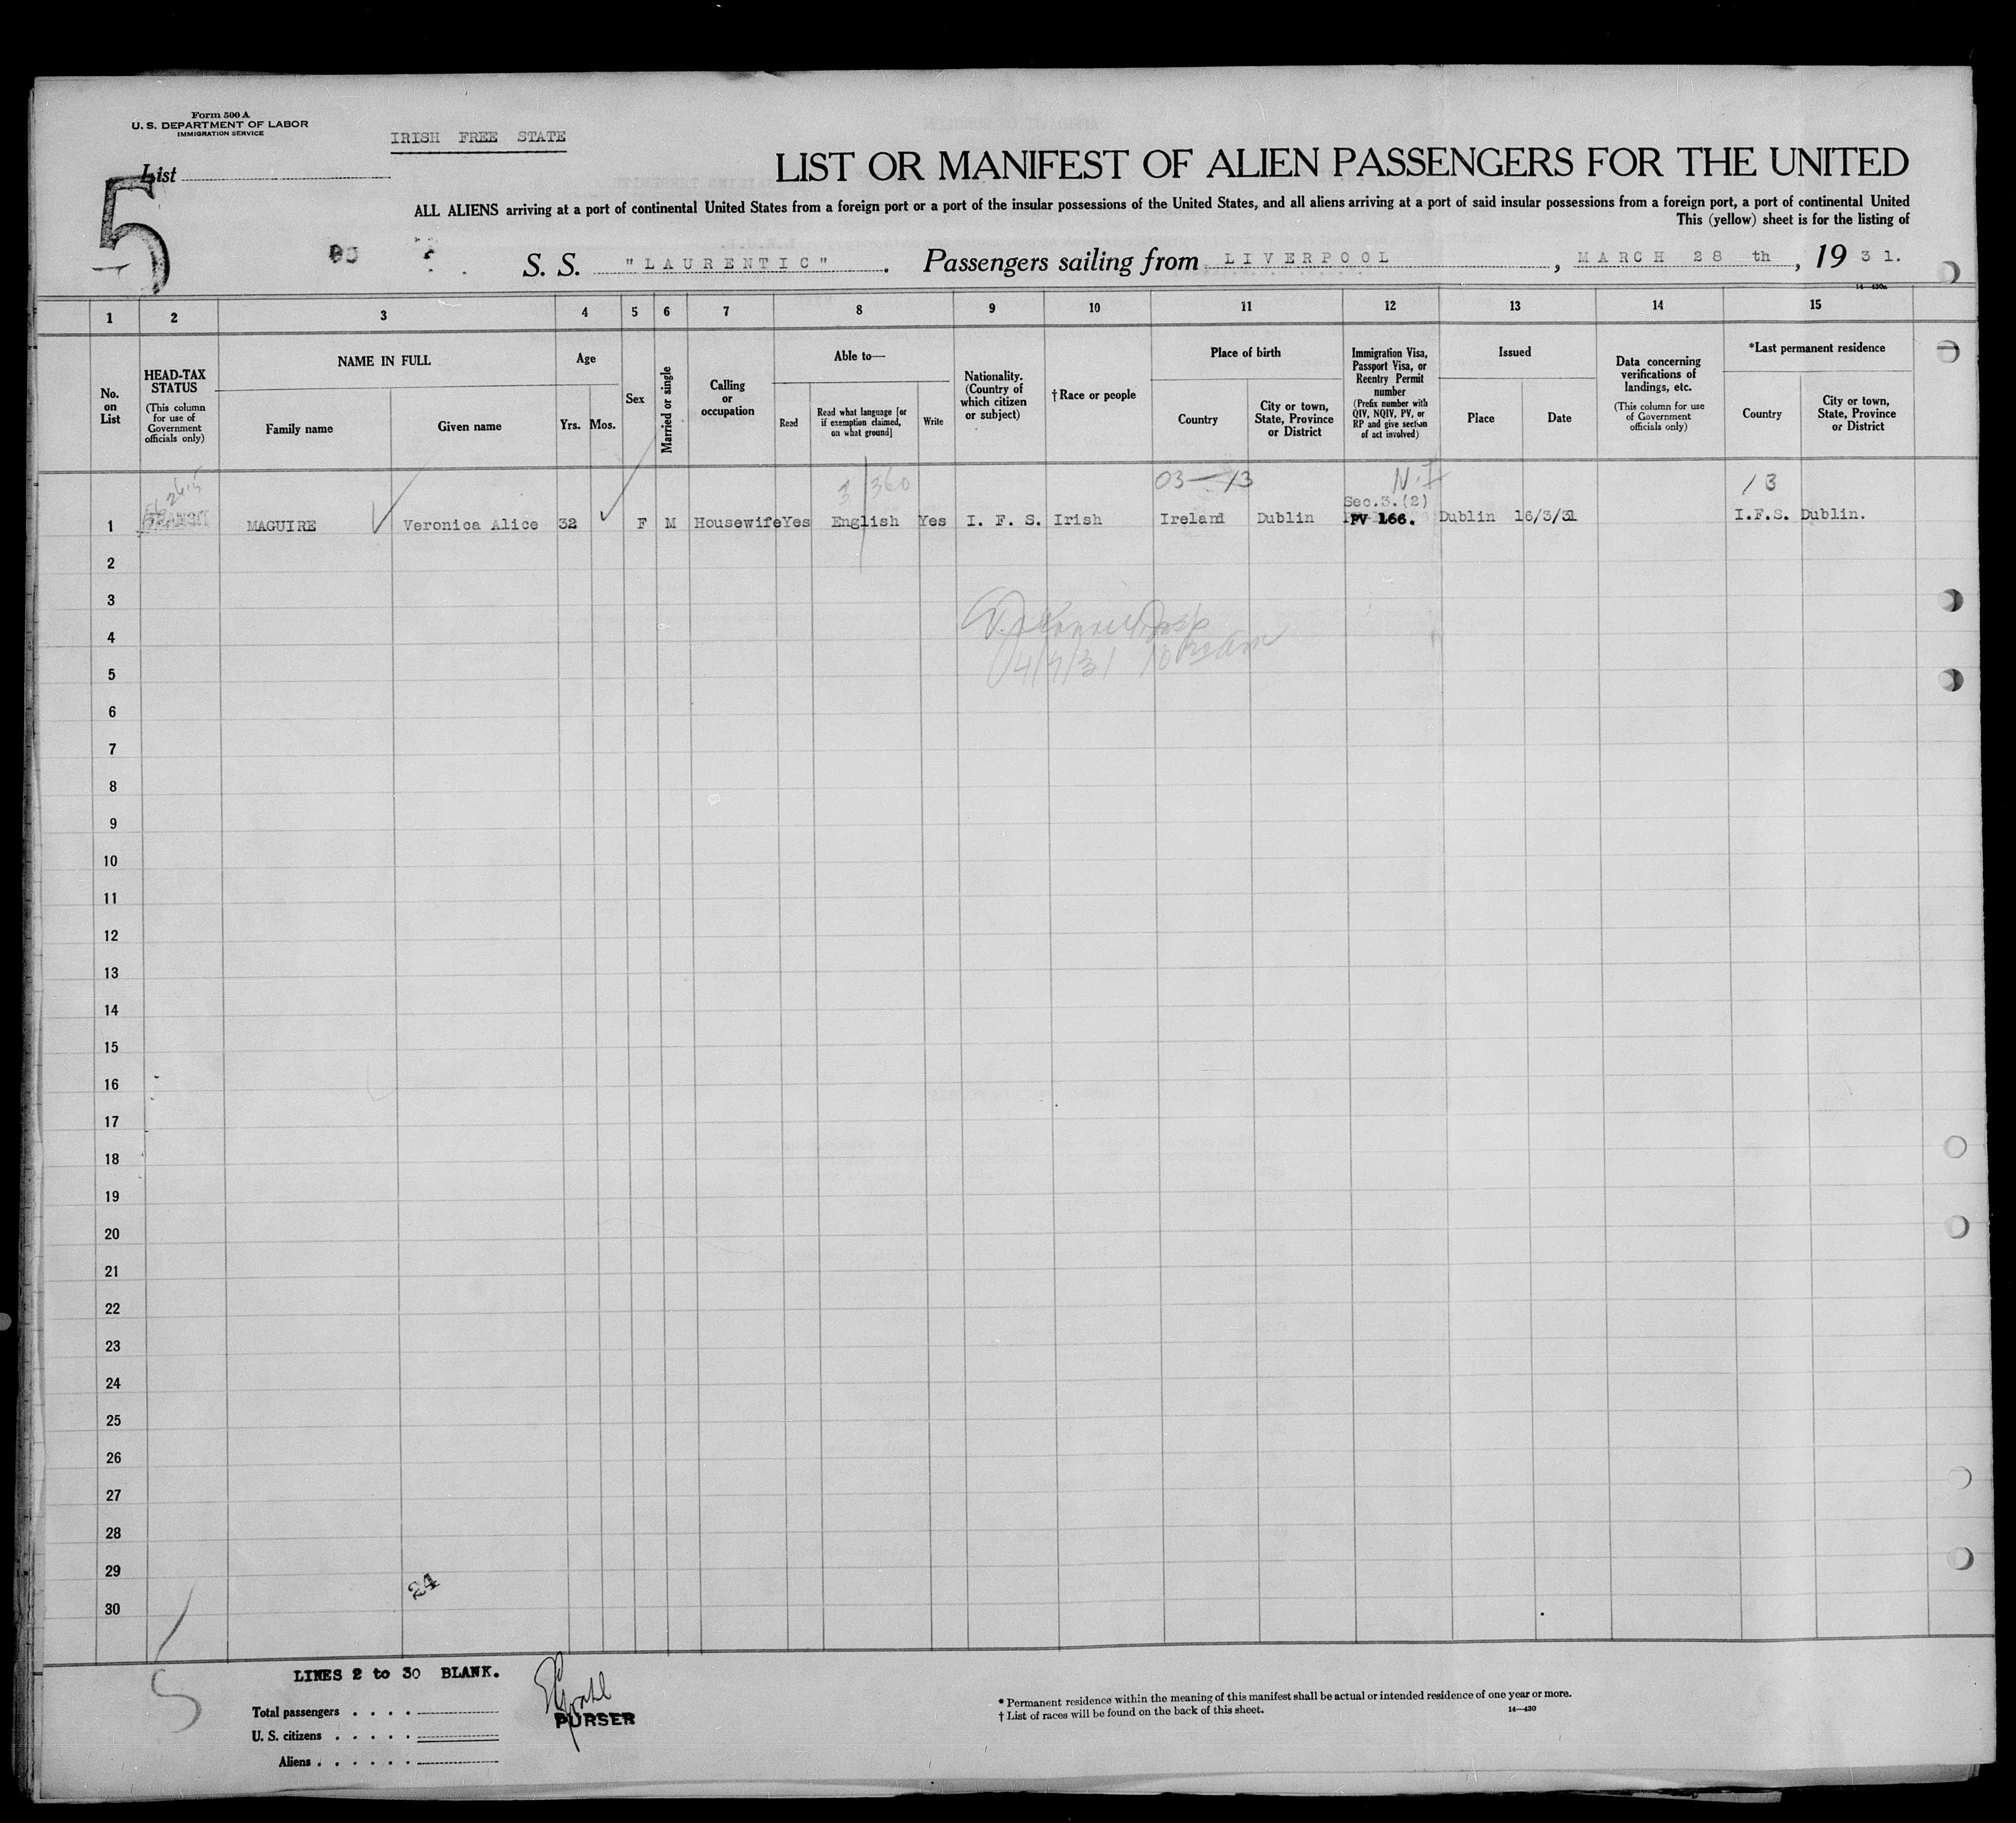 Form 500 A
U. S. DEPARTMENT OF LABOR
IMMIGRATION SERVICE
IRISH FREE STATE
List
5
LIST OR MANIFEST OF ALIEN PASSENGERS FOR THE UNITED
ALL ALIENS arriving at a port of continental United States from a foreign port or a port of the insular possessions of the United States, and all aliens arriving at a port of said insular possessions from a foreign port, a port of continental United
This (yellow) sheet is for the listing of
S. S. "LAURENTIC". Passengers sailing from LIVERPOOL, MARCH 28 th, 1931.
14—430a
1 2 3 4 5 6 7 8 9 10 11 12 13 14 15
No. on List
HEAD-TAX STATUS
(This column for use of Government officials only)
NAME IN FULL
Family name
Given name
Age
Yrs. Mos.
Sex
Married or single
Calling or occupation
Able to—
Read
Read what language [or if exemption claimed, on what ground]
Write
Nationality. (Country of which citizen or subject)
†Race or people
Place of birth
Country
City or town, State, Province or District
Immigration Visa, Passport Visa, or Reentry Permit number
(Prefix number with QIV, NQIV, PV, or RP and give section of act involved)
Issued
Place
Date
Data concerning verifications of landings, etc.
(This column for use of Government officials only)
*Last permanent residence
Country
City or town, State, Province or District
3 360 03—13 N.I 13
Sec.3.(2)
1 TRANSIT MAGUIRE Veronica Alice 32 F M Housewife Yes English Yes I. F. S. Irish Ireland Dublin PV 166. Dublin 16/3/31 I.F.S. Dublin.
2
3
4
5
4/7/31
6
7
8
9
10
11
12
13
14
15
16
17
18
19
20
21
22
23
24
25
26
27
28
29
24
30
5
LINES 2 to 30 BLANK.
Total passengers . . . .
U. S. citizens . . . . .
Aliens . . . . . .
PURSER
* Permanent residence within the meaning of this manifest shall be actual or intended residence of one year or more.
† List of races will be found on the back of this sheet.
14—430